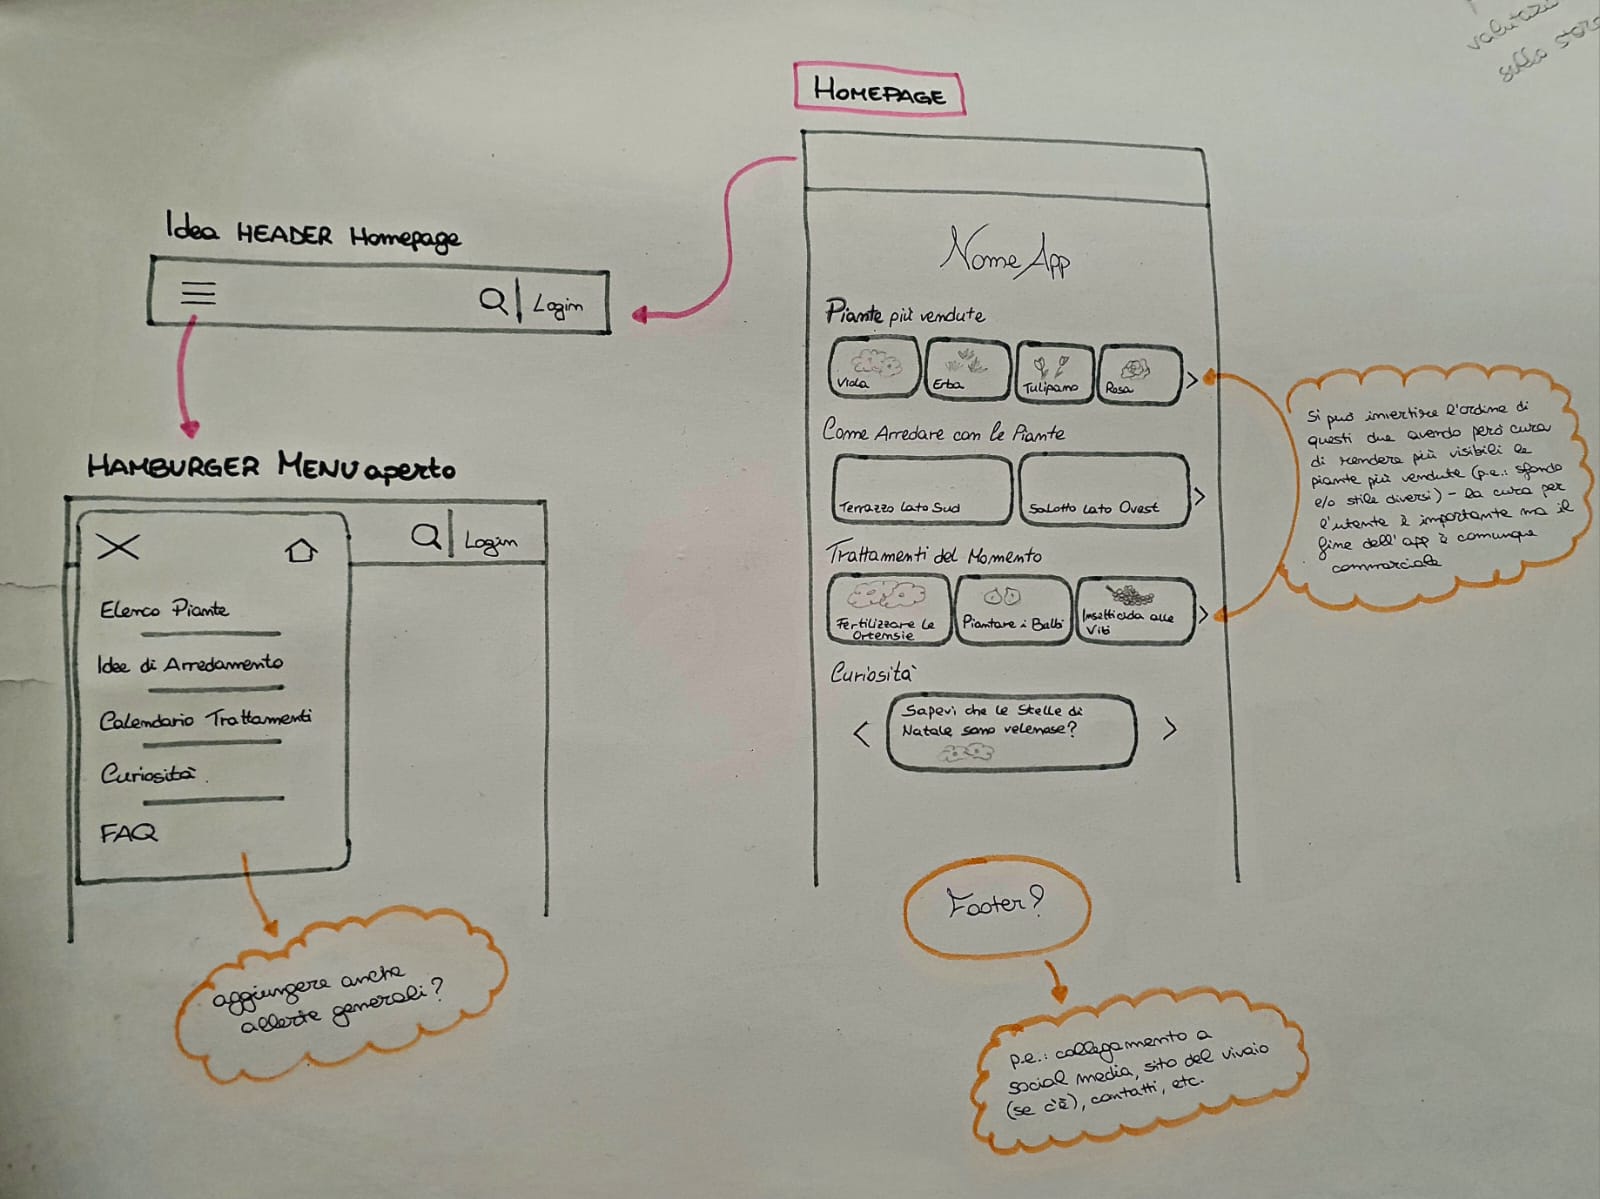 valutazi
sulla stor
HOMEPAGE
Idea HEADER Homepage
Login
HAMBURGER MENU aperto
Login
Elenco Piante
Idee di Arredamento
Calendario Trattamenti
Curiosità
FAQ
aggiungere anche
allerte generali?
Nome App
Piante più vendute
Viola
Erba
Tulipano
Rosa
Come Arredare con le Piante
Terrazzo Lato Sud
Salotto Lato Ovest
Trattamenti del Momento
Fertilizzare le
Ortensie
Piantare i Bulbi
Insetticida alle
Viti
Curiosità
Sapevi che le Stelle di
Natale sono velenose?
Si può invertire l'ordine di
questi due avendo però cura
di rendere più visibili le
piante più vendute (p.e.: sfondo
e/o stile diversi) - la cura per
l'utente è importante ma il
fine dell'app è comunque
commerciale
Footer?
p.e.: collegamento a
social media, sito del vivaio
(se c'è), contatti, etc.